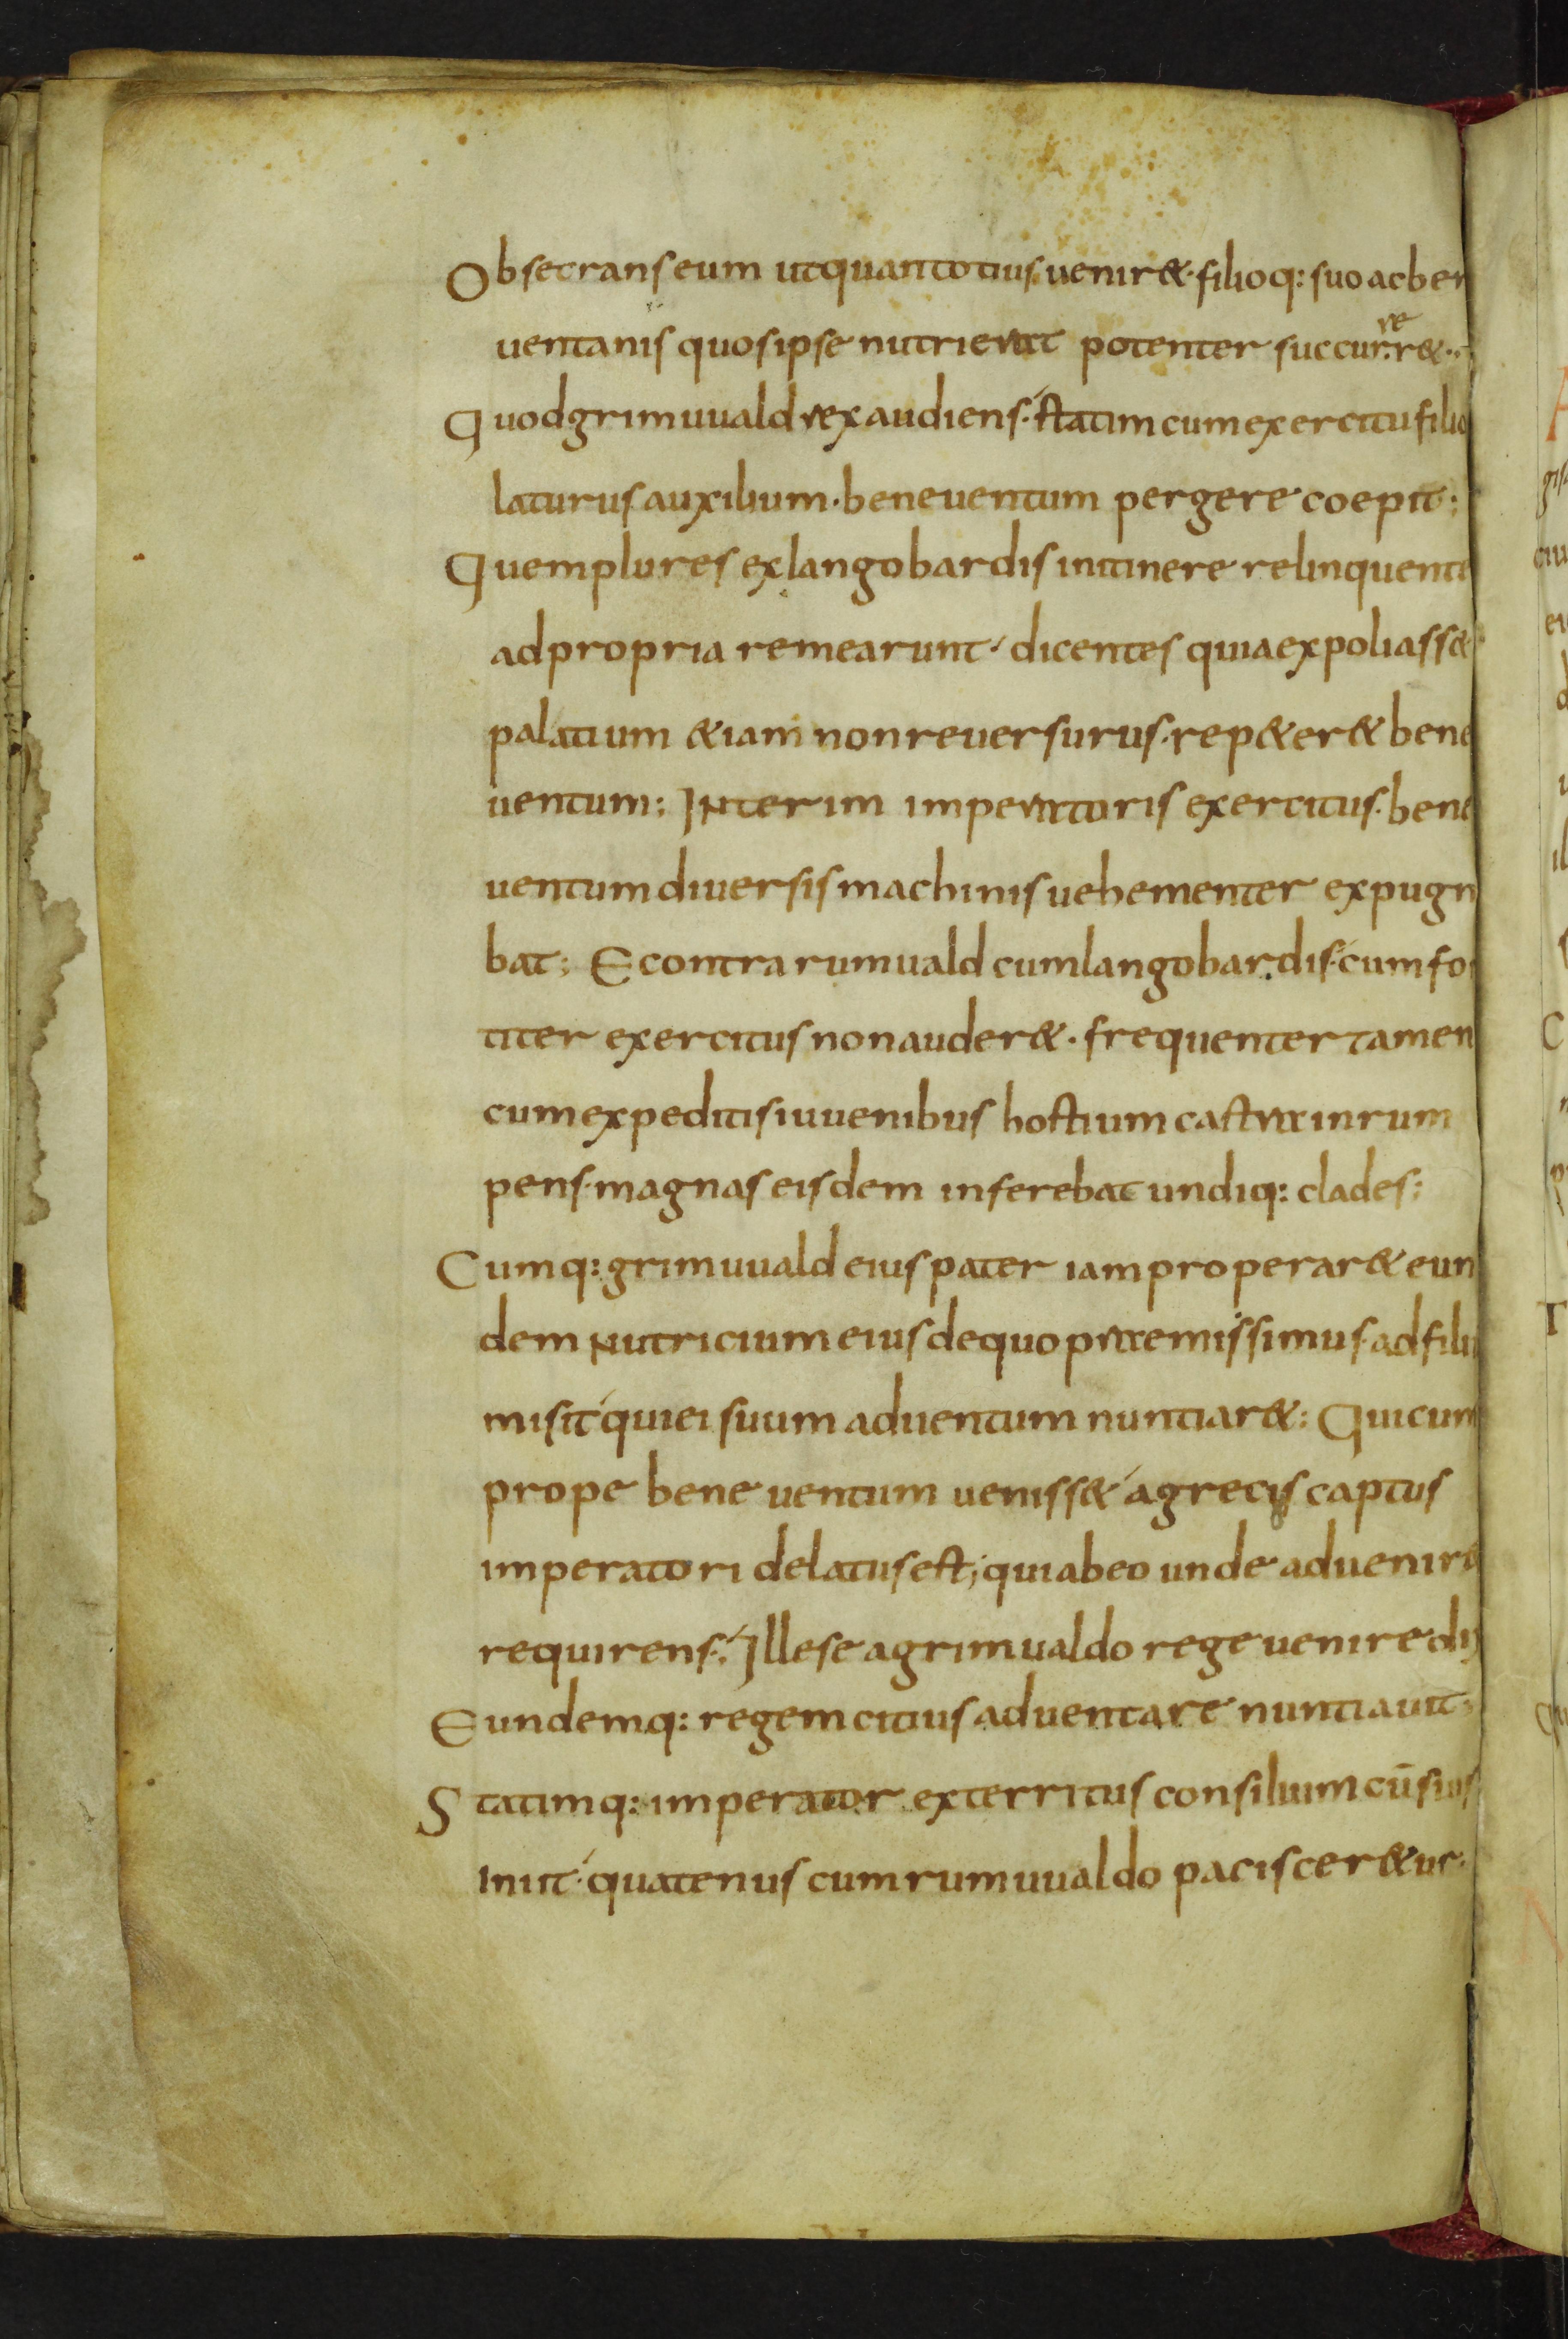 Obsecrans eum ut quantotius veniret. filioq: suo ac ben
uentanis quos ipse nutrierat potenter succurreret.
Quod grimuuald rex audiens. statim cum exercitu filio
laturus auxilium. beneuentum pergere coepit;
Quem plures ex langobardis in itinere relinquente
ad propria remearunt. dicentes quia expoliasset
palatium & iam non reuersurus. repeteret bene
uentum; Interim imperatoris exercitus. bene
uentum diuersis machinis uehementer expugn
bat; E contra rumuald cum langobardis. cum fo
titer exercitus non auderet. frequenter tamen
cum expeditis iuuenibus hostium castra inrum
pens. magnas eisdem inferebat undiq: clades;
Cumq: grimuuald eius pater iam properaret eun
dem nutricium eius de quo praemissimus. ad filiu
misit qui ei suum aduentum nuntiaret; Qui cum
prope beneuentum uenisset a grecis captus
imperatori delatus est; qui ab eo unde aduenire
requirens. Ille se a grimualdo rege uenire di
Eundemq: regem citius aduentare nuntiauit;
Statimq: imperator exterritus consilium cū suis
iniit. quatenus cum rumuualdo pacisceret ut